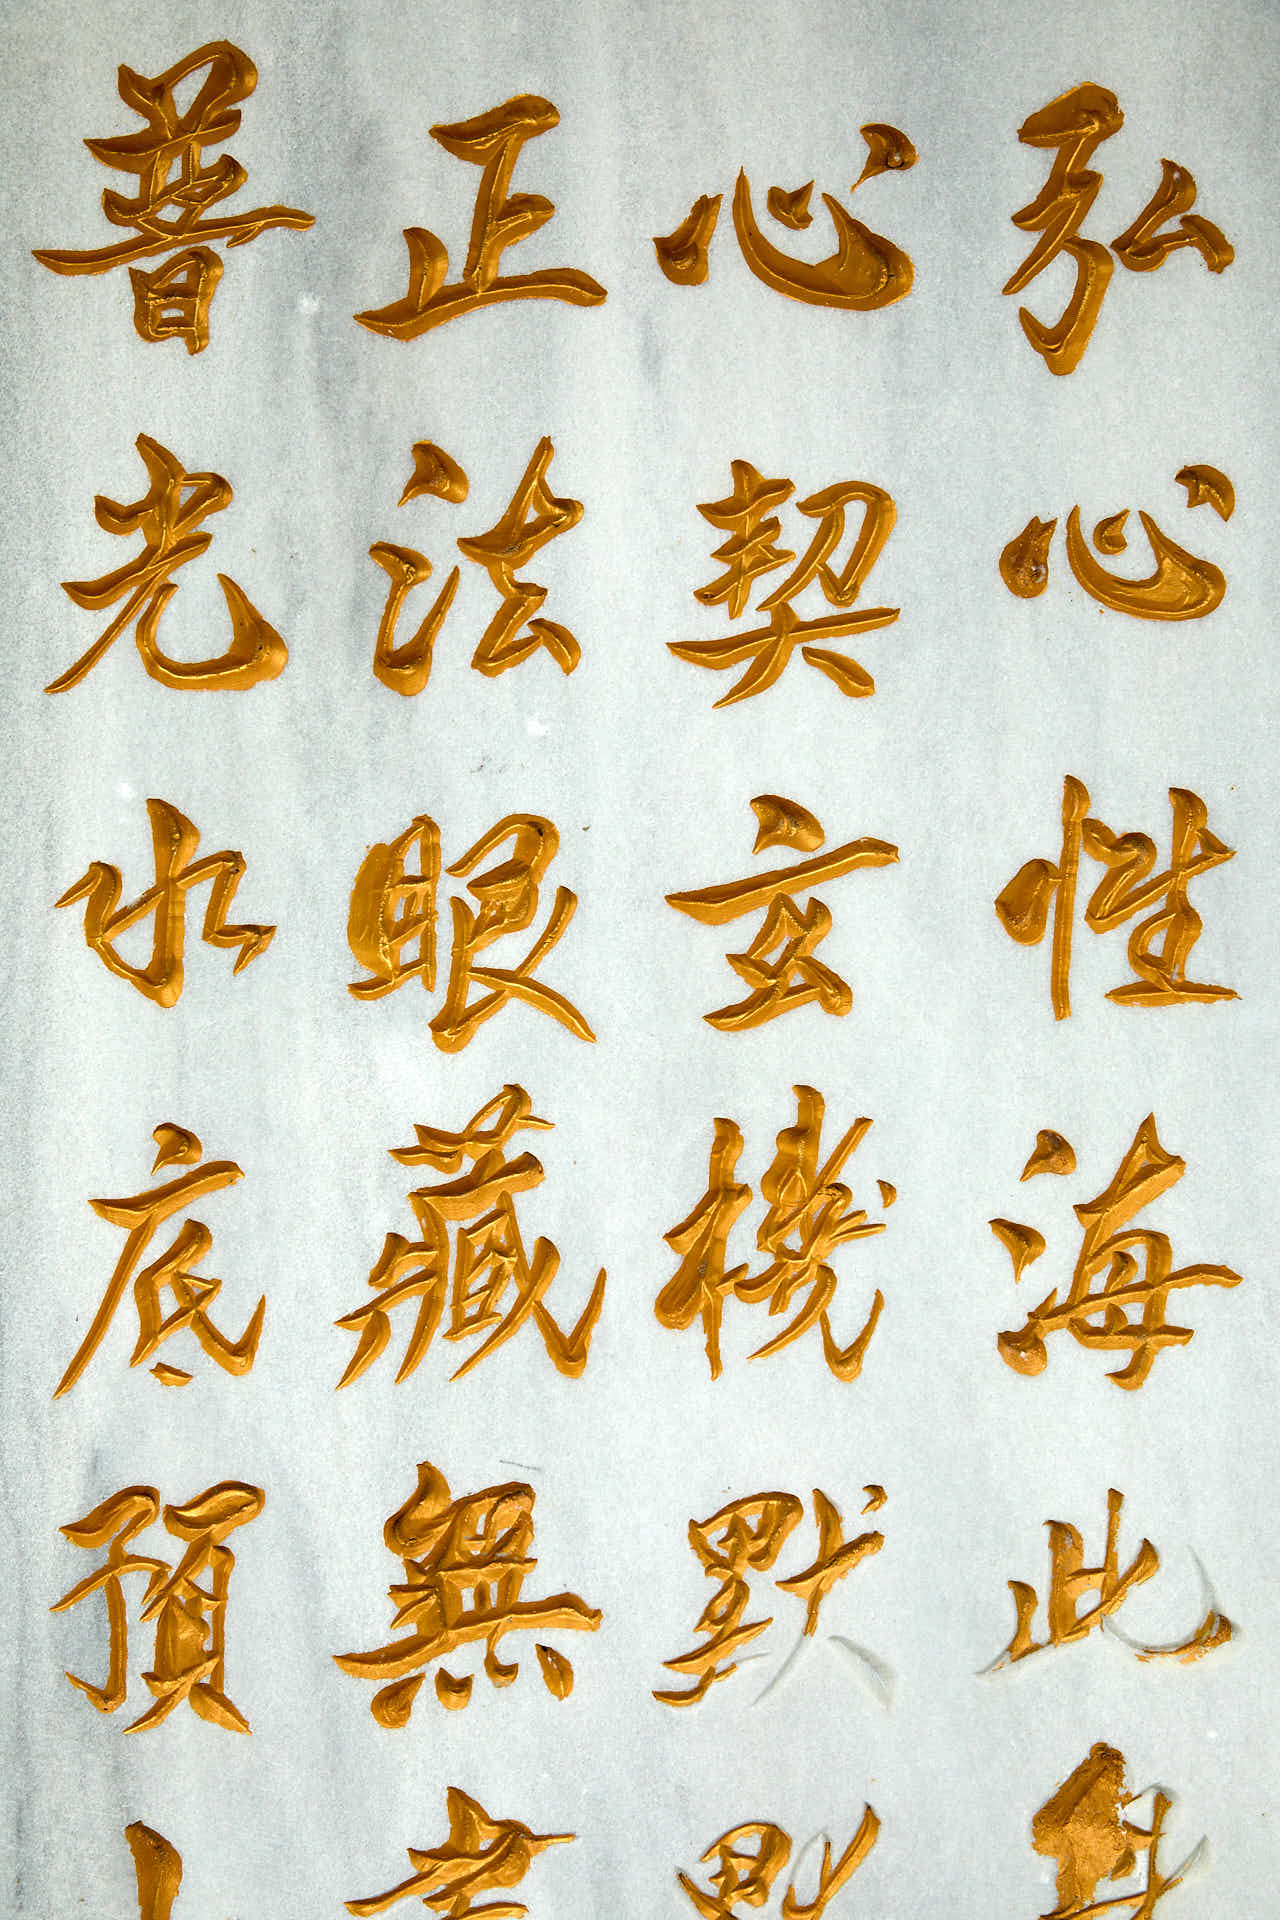 弘心性海此
心契玄機默默
正法眼藏無
普光水底預